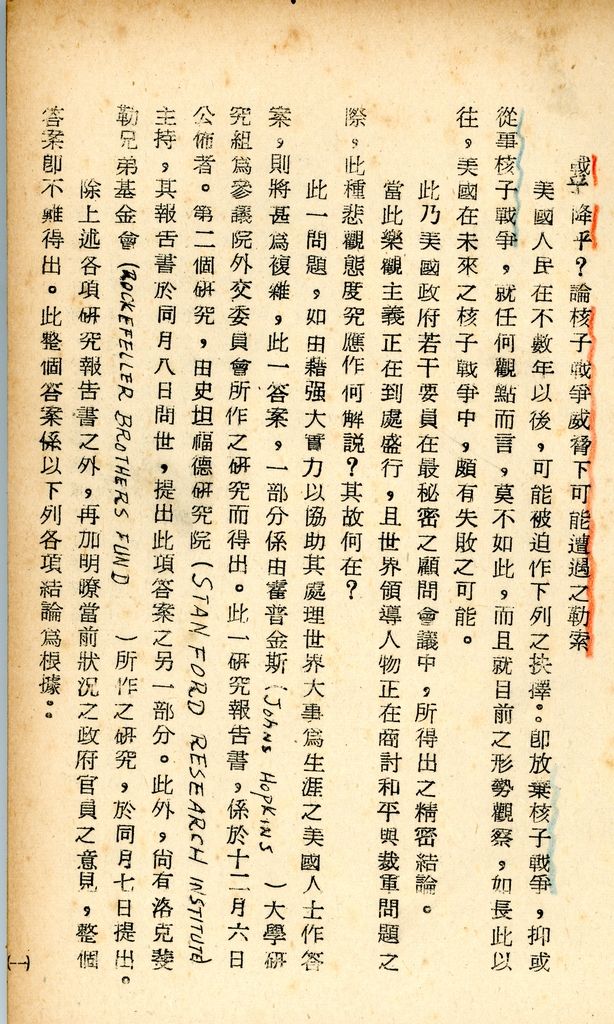 或降乎?論核子戰爭威脅下可能遭遇之勒索
美國人民在不數年以後,可能被迫作下列之抉擇。即放棄核子戰爭,抑或
從事核子戰爭,就任何觀點而言,莫不如此,而且就目前之形勢觀察,如長此以
往,美國在未來之核子戰爭中,頗有失敗之可能。
此乃美國政府若干要員在最秘密之顧問會議中,所得出之精密結論。
當此樂觀主義正在到處盛行,且世界領導人物正在商討和平與裁軍問題之
際,此種悲觀態度究應作何解說?其故何在?
此一問題,如由藉强大實力以協助其處理世界大事為生涯之美國人士作答
案,則將甚為複雜,此一答案,一部分係由霍普金斯(JOHNS HOPKINS )大學研
究組為參議院外交委員會所作之研究而得出。此一研究報告書,係於十二月六日
公佈者。第二個研究,由史坦福德研究院(STANFORD RESEARCH INSTITUTE)
主持,其報告書於同月八日問世,提出此項答案之另一部分。此外,尚有洛克斐
勒兄弟基金會(ROCKEFELLER BROTHERS FUND )所作之研究,於同月七日提出。
除上述各項研究報告書之外,再加明瞭當前狀況之政府官員之意見,整個
答案即不難得出。此整個答案係以下列各項結論為根據。。
(一)